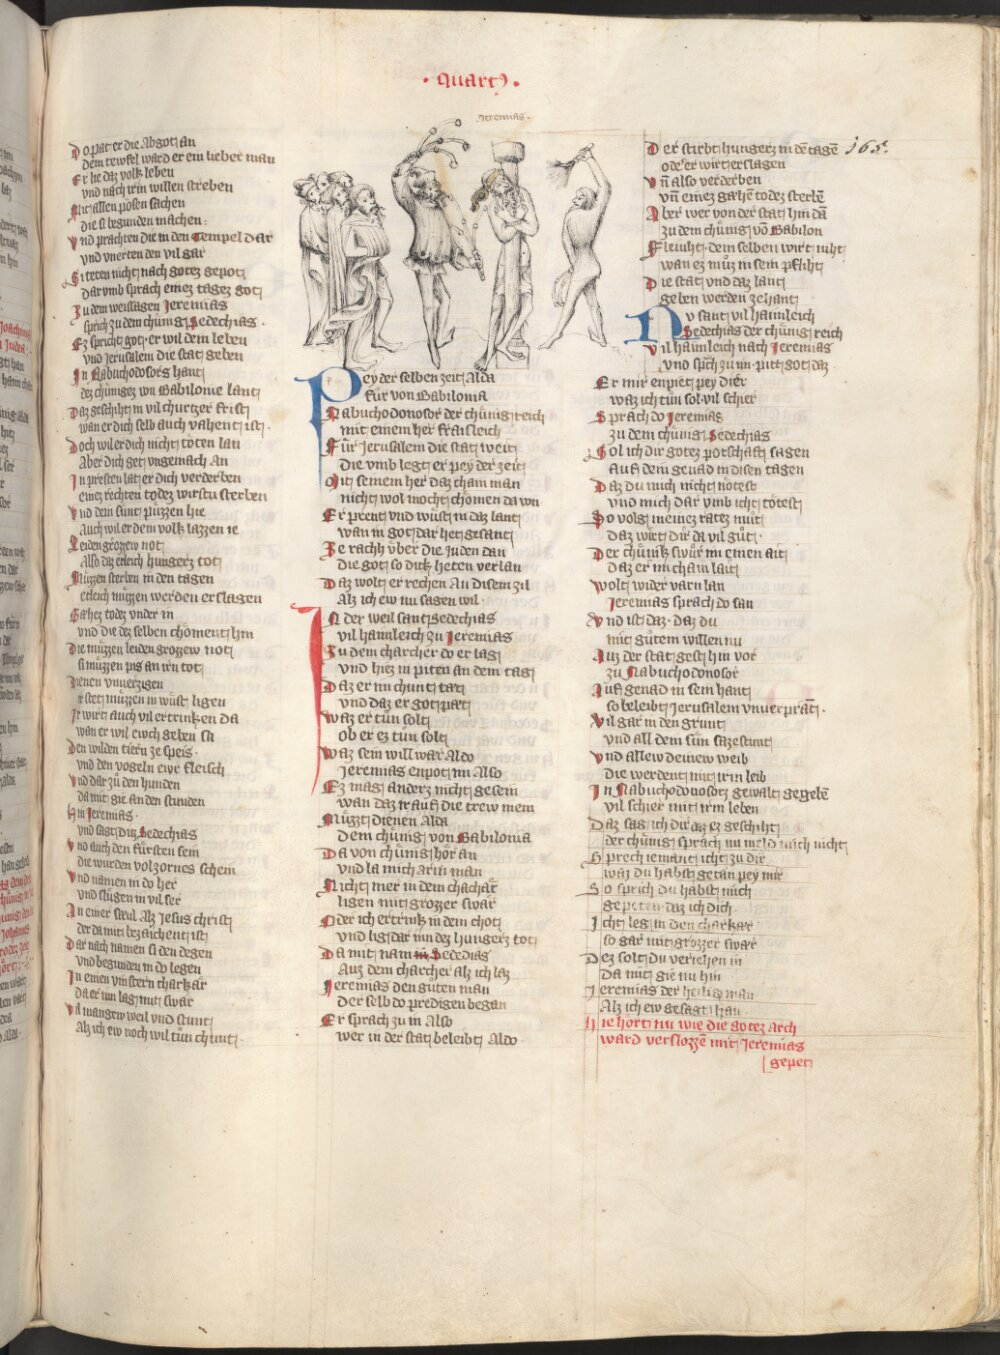 · Quart9 ·
Jeremias ·
165.
Do pat er die Abgot an
dem tewfel ward er ein lieber man
Er lie daz volk leben
vnd nach irm willen streben
Mit allen posen sachen
die si begunden machen :
Vnd prachten die in den Tempel dar
vnd vnerten den vil gar
Si teten nicht nach gotez gepot
dar vmb sprach einez tagez got
Zu dem weissagen Jeremias
sprich zu dem chünig Sedechias ·
Ez spricht got · er wil dem leben
vnd Jerusalem die stat geben
In Nabuchodosors hant
dez chünigez von Babilonie lant
Daz geschiht in vil churtzer frist
wan er dich selb auch vahent ist ·
Doch wil er dich nicht toten lan
Aber dich get vngemach an
In presten lat er dich verderben
einez rechten todez wirstu sterben
Vnd dem sunt püzzen hie
Auch wil er dem volk lazzen ie
Leiden grozzew not
Also daz etleich hungerz tot
Müzzen sterben in den tagen
etleich müzzen werden erslagen
Gahez todez vnder in
vnd die dez selben choment hin
Die müzzen leiden grozew not
si müzzen pis an irn tot
Dienen vnuerzigen
ir stet müzzen in wüst ligen
Ir wirt auch vil ertrunken da
wan er wil ewch geben sa
Den wilden tiern ze speis ·
vnd den vogeln ewr fleisch
Vnd dar zů den hunden
da mit gie an den stunden
Hin Jeremias ·
vnd sagt diz Sedechias
Vnd auch den fürsten sein
die wurden vol zornes schein
Vnd namen in do her
vnd slügen in vil ser
An einer sæul alz Jesus christ
der da mit bezaichent ist
Dar nach namen si den degen
vnd begunden in do legen
In einen vinstern charkær
da er inn lag mit swær
Vil mangew weil vnd stunt
Alz ich ew noch wil tůn chunt ·
Pey der selben zeit Alda
für von Babilonia
Nabuchodonosor der chünig reich
mit einem her fraisleich
Für Jerusalem die stat weit
die vmb legt er pey der zeit
Mit seinem her daz cham man
nicht wol mocht chomen da von
Er prent vnd wůst in daz lant
wan in got dar het gesant
Ze rach vber die Juden dan
die got so dick heten verlan
Daz wolt er rechen An disem zil
Alz ich ew nu sagen wil ·
In der weil sant Sedechias
vil haimleich zu Jeremias
Zu dem charcher do er lag
vnd hiez in piten an dem tag
Daz er im chunt tæt
vnd daz er got pæt
Waz er tůn solt
ob er ez tůn solt
Waz sein will wær Aldo
Jeremias enpot im Also
Ez mag anderz nicht gesein
wan daz ir auf die trew mein
Müzzt dienen Alda
dem chünig von Babilonia
Da von chünig hör an
vnd la mich arm man
Nicht mer in dem chachær
ligen mit grozzer swær
Oder ich ertrink in dem chot
vnd lig dar inn dez hungerz tot
Da mit nam in Sededias
Auz dem charcher alz ich laz
Jeremias den gůten man
der selb do predigen began
Er sprach zu in Also
wer in der stat beleibt Aldo ·
Der stirbt hungerz in dē tagē
oder er wirt erslagen
Vn̄ also verderben
vn̄ einez gahē todez sterbē
Aber wer von der stat hin dā
zu dem chünig vō Babilon
Fleuht · dem selben wirt niht
wan ez můz in sein pfliht
Die stat vnd daz lant
geben werden zehant
Nv sant vil haimleich
Sedechias der chünig reich
Vil haimleich nach Jeremias
vnd sp̄ch zu im · pitt got daz
Er mir enpiet pey dier
waz ich tůn sol · vil schier
Sprach do Jeremias
zu dem chünig Sedechias
Sol ich dir gotez potschaft sagen
Auf dein genad in disen tagen
Daz du mich nicht nötest
vnd mich dar vmb icht tötest
So volg meinez ratez můt
daz wirt dir da vil gůt ·
Der chünik swůr im einen ait
daz er im chain lait
Wolt wider varn lan
Jeremias sprach do san
Vnd ist daz · daz du
mit gůtem willen nu
Auz der stat gest hin vor
zu Nabuchodonosor
Auf genad in sein hant
so beleibt Jerusalem vnuerprāt ·
Vil gar in den grunt
vnd all dein sün sazestunt
Vnd allew deinew weib
die werdent mit irm leib
In Nabuchodonosorz gewalt gegebē
vil schier mit irm leben
Daz sag ich dir daz ez geschiht
der chünig sprach nu meld mich nicht
Sprech iemant icht zu dir
waz du habst getan pey mir
So sprich du habst mich
gepeten daz ich dich
Icht leg in den charkær
so gar mit grozzer swær
Dez solt du veriehen in
Da mit gie nu hin
Jeremias der heilig man
Alz ich ew gesagt han
Hie hort nu wie die gotez arch
ward verslozzē mit Jeremias
gepet